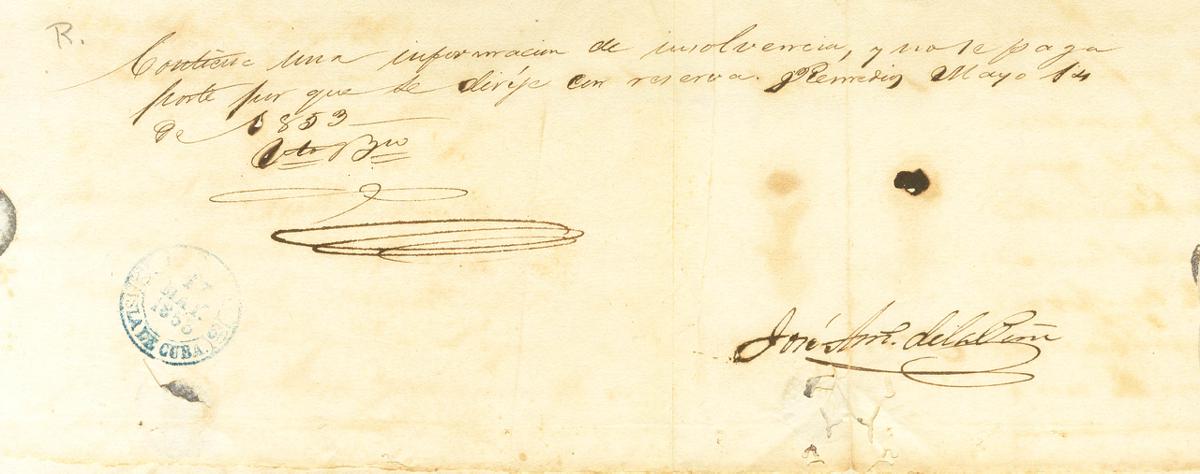 R.
Contiene una informacion de insolvencia, y no se paga
porte por que se dirije con reserva. Remedios Mayo 14
de 1853
Vto Bno
17
MAY.
1853
ISLA DE CUBA.
José Ant. de la